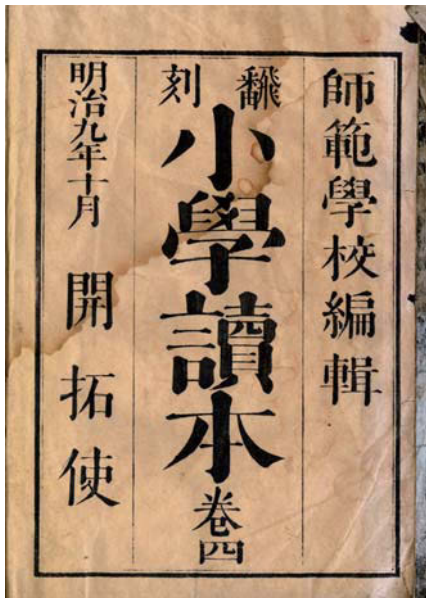 師範學校編輯
飜刻
小學讀本卷四
明治九年十月　開拓使